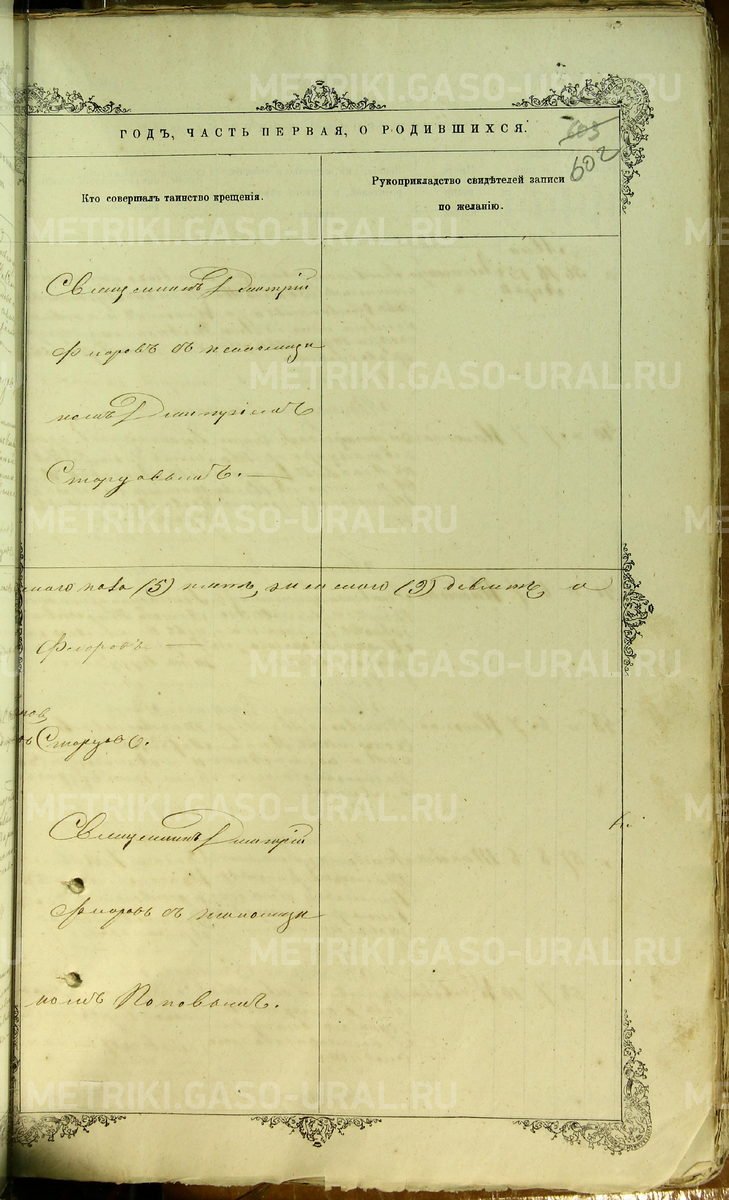 ГОДЪ, ЧАСТЬ ПЕРВАЯ, О РОДИВШИХСЯ.
603
602
Кто совершалъ таинство крещенія.
Рукоприкладство свидѣтелей записи
по желанію.
Священникъ Дмитрій
Флоровъ съ псаломщи
комъ Дмитріемъ
Старцовымъ.
пола (5) пять, женскаго (9) девять, а
Флоровъ
Старцовъ.
Священникъ Дмитрій
Флоровъ съ псаломщи
комъ Поповымъ.
METRIKI.GASO-URAL.RU